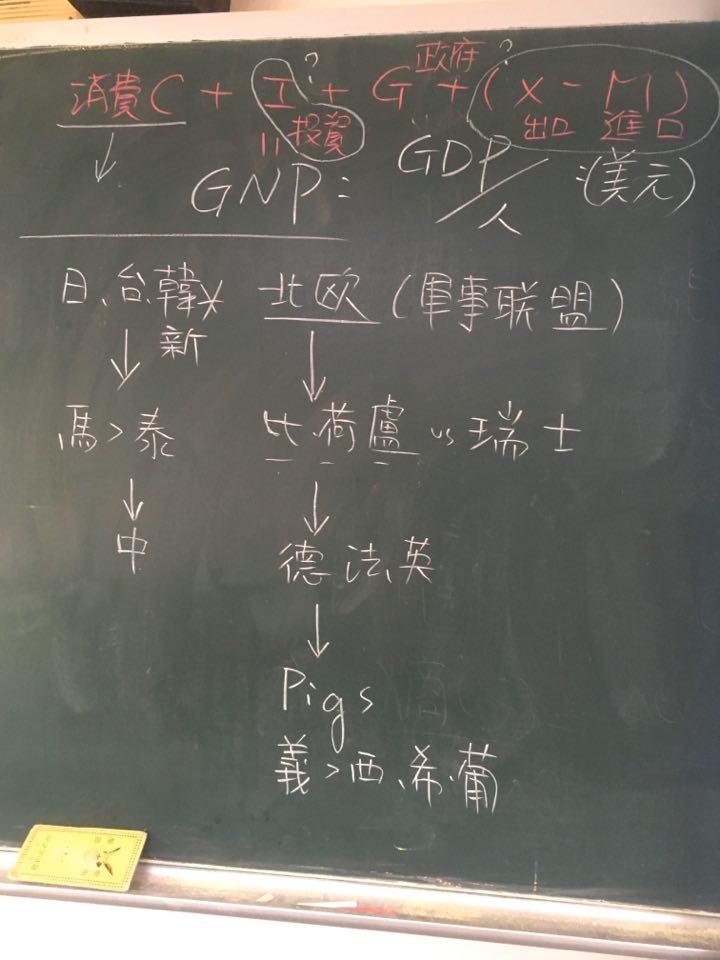 政府
? ?
消費C + I + G + (X - M)
投資 出口 進口
GNP: GDP/人 :(美元)
日、台、韓 北欧 (軍事联盟)
新
馬>泰 比.荷.盧 vs 瑞士
中
德法英
Pigs
義>西、希.葡